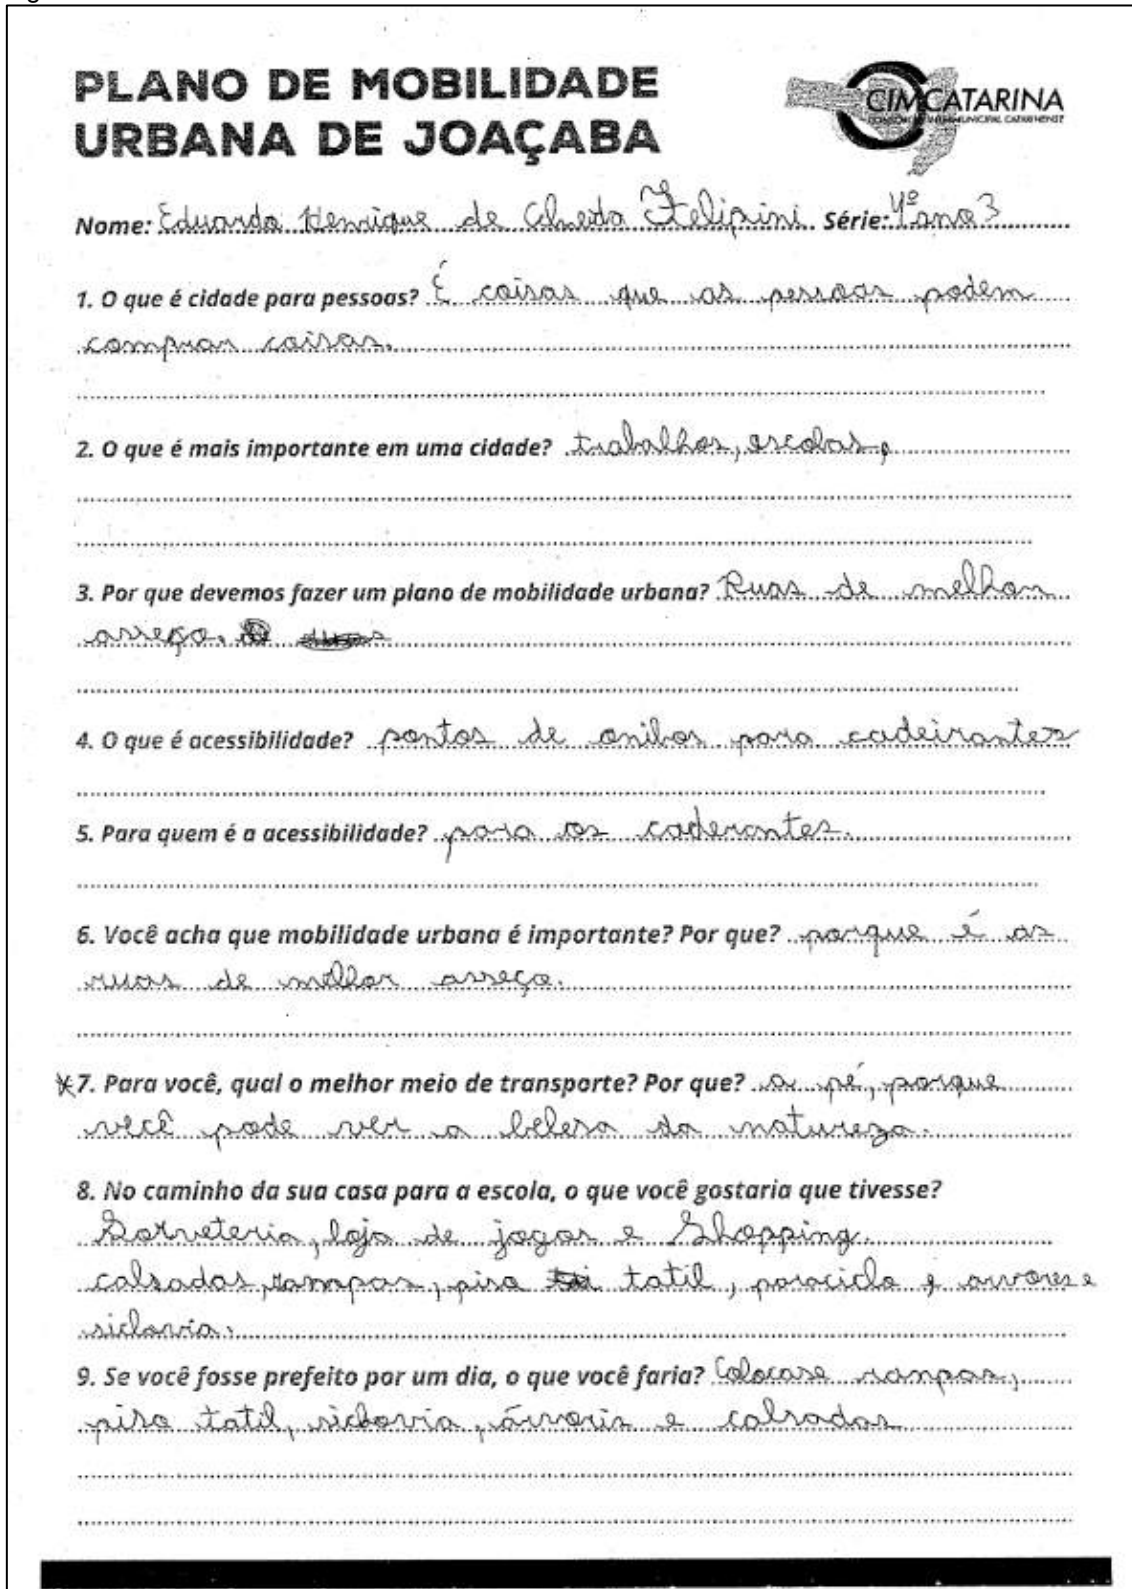 PLANO DE MOBILIDADE
URBANA DE JOAÇABA
CIMCATARINA
CONSÓRCIO INTERMUNICIPAL CATARINENSE
Nome: Eduardo Henrique de Almeida Felipini Série: 4º ano 3
1. O que é cidade para pessoas? É coisas que as pessoas podem
comprar coisas.
2. O que é mais importante em uma cidade? trabalhos, escolas,
3. Por que devemos fazer um plano de mobilidade urbana? Ruas de melhor
asseço.
4. O que é acessibilidade? pontos de onibos para cadeirantes
5. Para quem é a acessibilidade? para os caderantes.
6. Você acha que mobilidade urbana é importante? Por que? porque é as
ruas de melhor asseço.
*7. Para você, qual o melhor meio de transporte? Por que? a pé, porque
você pode ver a belesa da natureza.
8. No caminho da sua casa para a escola, o que você gostaria que tivesse?
Sorveteria, loja de jogos e Shopping.
calsadas, rampas, piso tatil, paraciclo e arvores e
siclovia.
9. Se você fosse prefeito por um dia, o que você faria? Colocase rampas,
piso tatil, siclovia, árvoris e calsadas